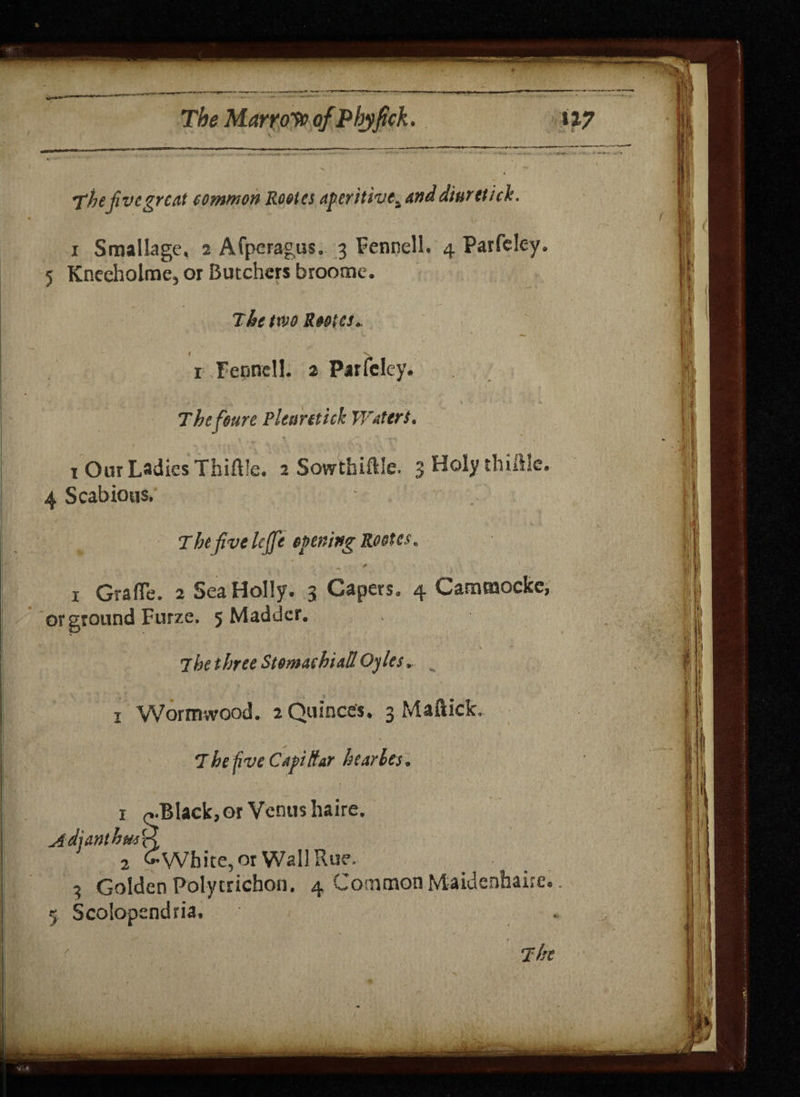 The Marrow of Phyſick. 127
The five great common Rootes aperitive, and diuretick.
1 Smallage, 2 Aſperagus. 3 Fennell. 4 Parſeley.
5 Kneeholme, or Butchers broome.
The two Rootes.
1 Fennell. 2 Parſeley.
The foure Pleuretick Waters.
1 Our Ladies Thiſtle. 2 Sowthiſtle. 3 Holy thiſtle.
4 Scabious.
The five leſſe opening Rootes.
1 Graſſe. 2 Sea Holly. 3 Capers. 4 Cammocke,
or ground Furze. 5 Madder.
The three Stomachiall Oyles.
1 Wormwood. 2 Quinces. 3 Maſtick.
The five Capillar hearbes.
1 Black, or Venus haire.
Adjanthus
2 White, or Wall Rue.
3 Golden Polytrichon. 4 Common Maidenhaire.
5 Scolopendria.
The